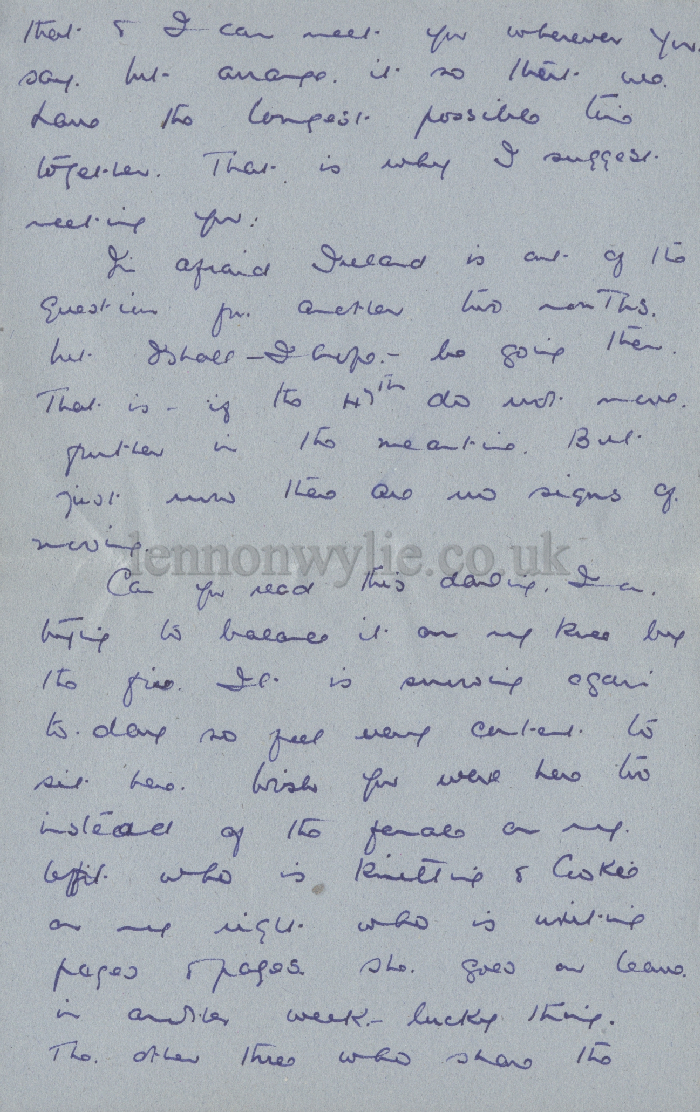 that & I can meet you wherever you
say. but arrange it so that we
have the longest possible time
together. That is why I suggest
meeting you.
I'm afraid Ireland is out of the
question for another two months.
but I shall – I hope – be going then.
That is – if the 47th do not move
further in the meantime. But
just now there are no signs of
moving.
lennonwylie.co.uk
Can you read this darling. I am
trying to balance it on my knee by
the fire. It is snowing again
to-day so feel very content to
sit here. Wish you were here too
instead of the female on my
left who is knitting & Cookie
on my right who is writing
pages & pages. She goes on leave
in another week – lucky thing.
The other three who share the